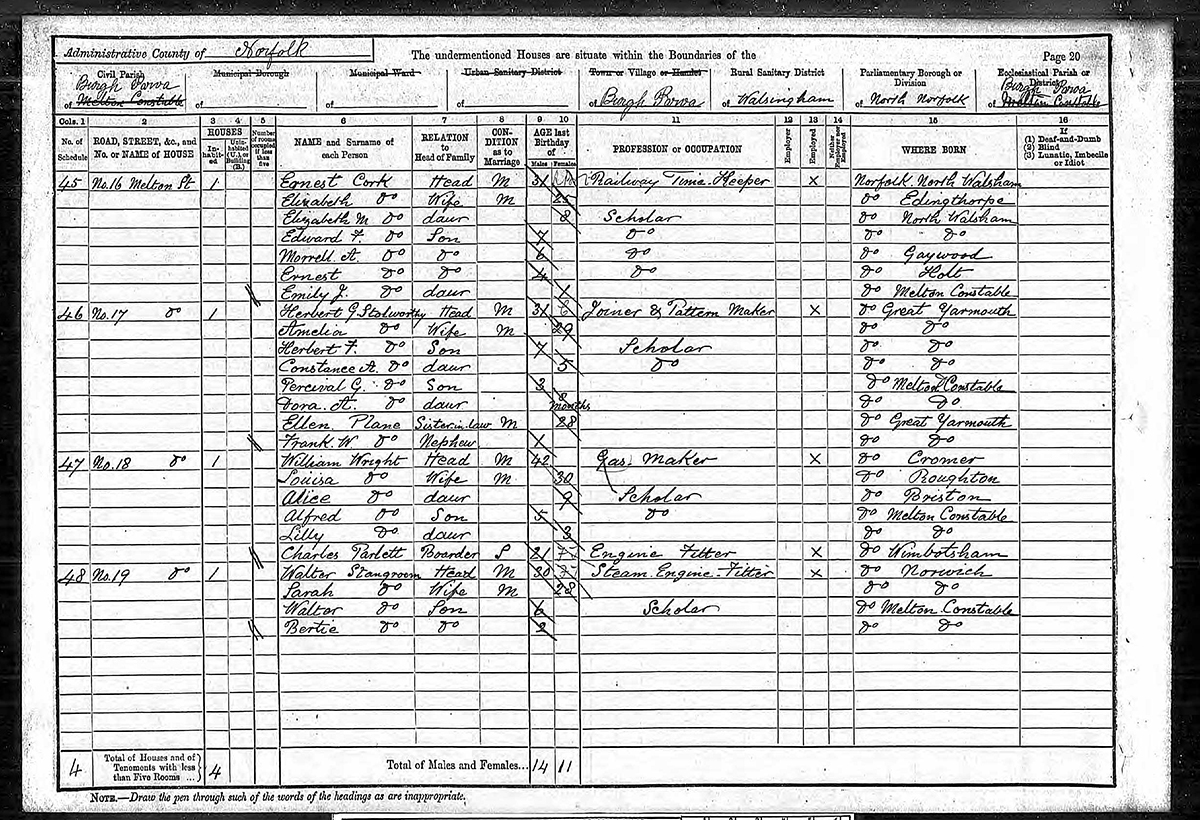 Administrative County of Norfolk The undermentioned Houses are situate within the Boundaries of the Page 20
Civil Parish of Burgh Parva Melton Constable Municipal Borough of Municipal Ward of Urban Sanitary District of Town or Village or Hamlet of Burgh Parva Rural Sanitary District of Walsingham Parliamentary Borough or Division of North Norfolk Ecclesiastical Parish or District of Burgh Parva Melton Constable
Cols. 1 2 3 4 5 6 7 8 9 10 11 12 13 14 15 16
No. of Schedule ROAD, STREET, &c., and No. or NAME of HOUSE HOUSES Inhabited Uninhabited (U.), or Building (B.) Number of rooms occupied if less than five NAME and Surname of each Person RELATION to Head of Family CONDITION as to Marriage AGE last Birthday of Males Females PROFESSION or OCCUPATION Employer Employed Neither Employer nor Employed WHERE BORN If (1) Deaf-and-Dumb (2) Blind (3) Lunatic, Imbecile or Idiot
45 No. 16 Melton St 1 Ernest Cork Head M 31 Railway Time-Keeper X Norfolk North Walsham
Elizabeth Do Wife M Do Edingthorpe
Elizabeth M Do daur 8 Scholar Do North Walsham
Edward F. Do Son 7 Do Do Do
Morrell A. Do Do 6 Do Do Gaywood
Ernest Do Do 4 Do Do Holt
Emily J. Do daur 1 Do Melton Constable
46 No. 17 Do 1 Herbert G Stolworthy Head M 31 Joiner & Pattern Maker X Do Great Yarmouth
Amelia Do Wife M 29 Do Do
Herbert F. Do Son 7 Scholar Do Do
Constance A. Do daur 5 Do Do Do
Percival G. Do Son 3 Do Melton Constable
Dora. A. Do daur 8 months Do Do
Ellen Plane Sister-in-law M 28 Do Great Yarmouth
Frank. W. Do Nephew 1 Do Do
47 No. 18 Do 1 William Wright Head M 42 Gas. Maker X Do Cromer
Louisa Do Wife M 30 Do Roughton
Alice Do daur 9 Scholar Do Briston
Alfred Do Son 5 Do Do Melton Constable
Lilly Do daur 3 Do Do
Charles Parlett Boarder S 21 Engine Fitter X Do Wimbotsham
48 No. 19 Do 1 Walter Stangroom Head M 30 Steam Engine-Fitter X Do Norwich
Sarah Do Wife M 28 Do Do
Walter Do Son 6 Scholar Do Melton Constable
Bertie Do Do 2 Do Do
4 Total of Houses and of Tenements with less than Five Rooms ... 4 Total of Males and Females... 14 11
NOTE.—Draw the pen through such of the words of the headings as are inappropriate.